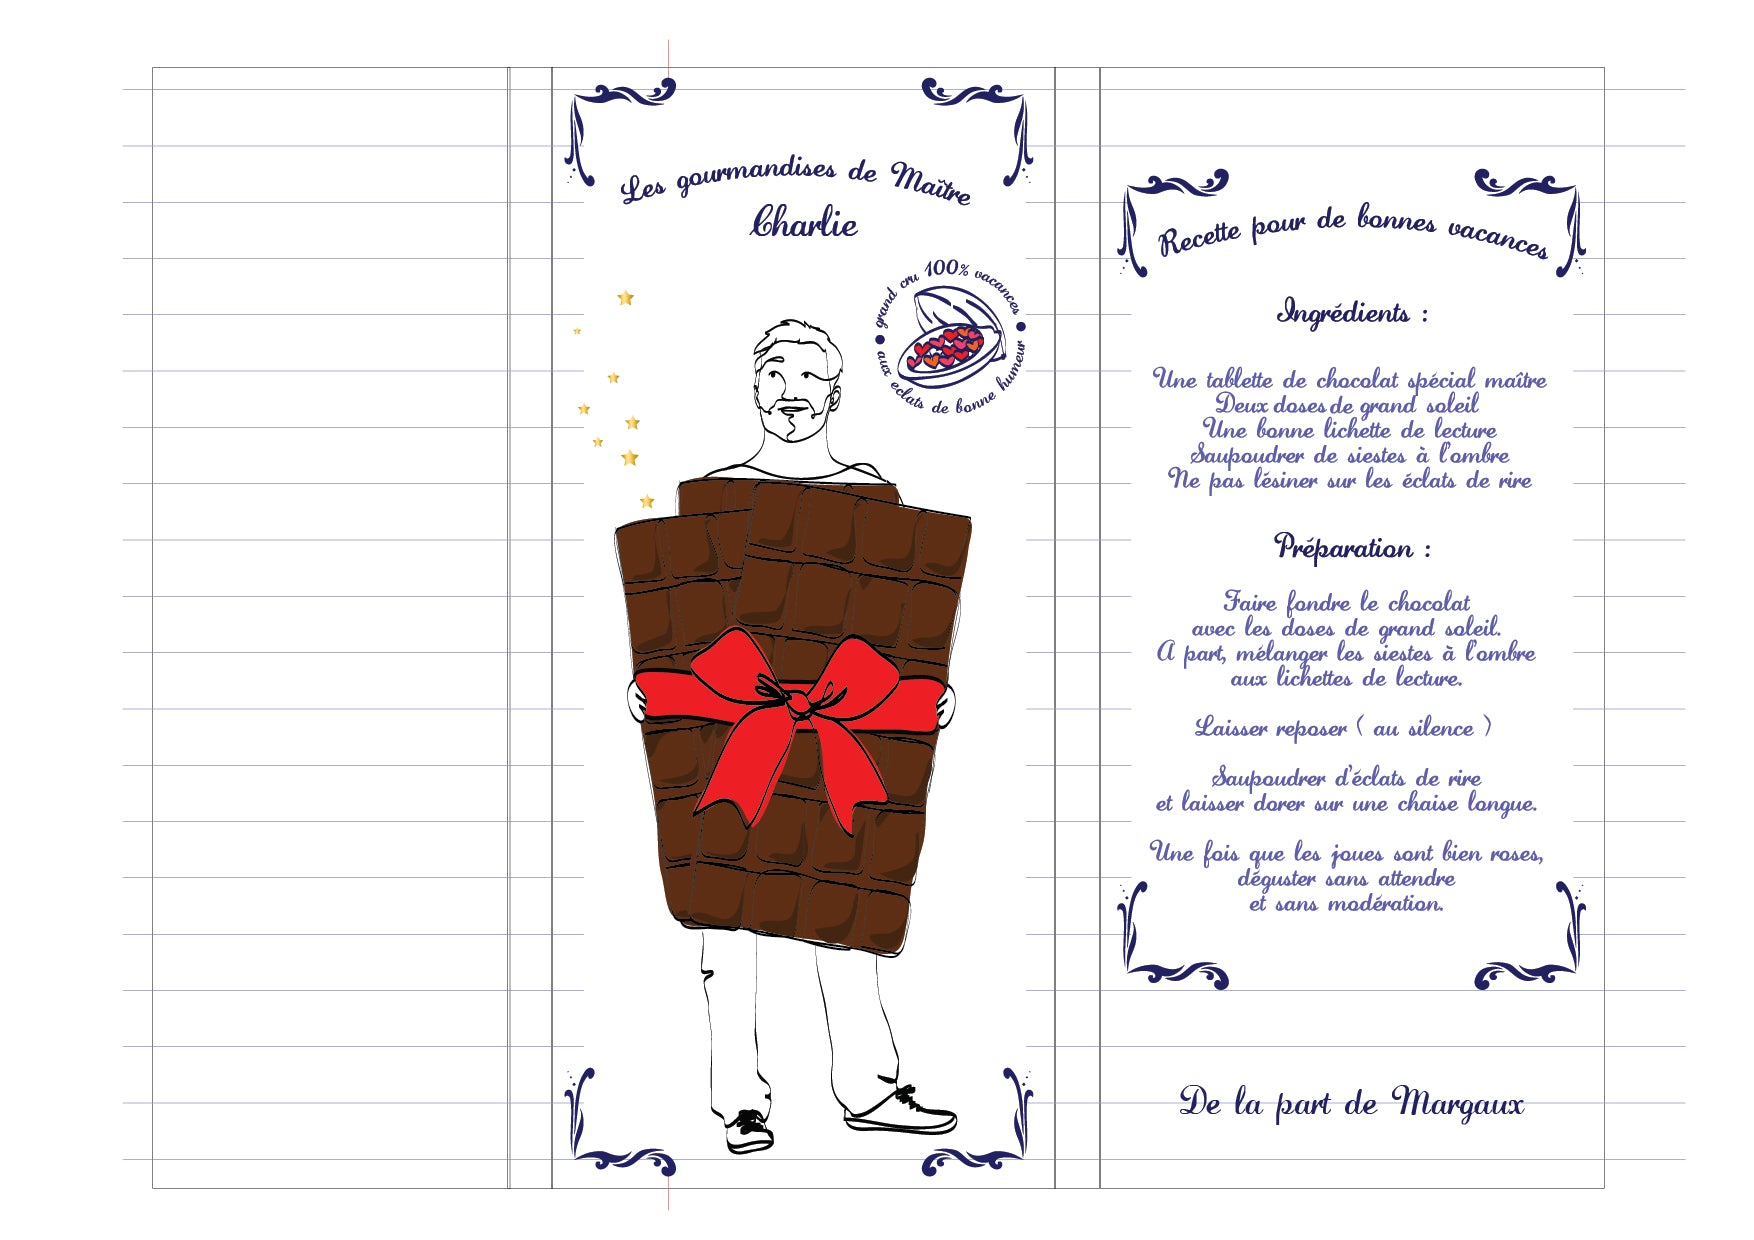 Les gourmandises de Maître
Charlie
grand cru 100% vacances
aux eclats de bonne humeur
Recette pour de bonnes vacances
Ingrédients :
Une tablette de chocolat spécial maître
Deux doses de grand soleil
Une bonne lichette de lecture
Saupoudrer de siestes à l'ombre
Ne pas lésiner sur les éclats de rire
Préparation :
Faire fondre le chocolat
avec les doses de grand soleil.
A part, mélanger les siestes à l'ombre
aux lichettes de lecture.
Laisser reposer ( au silence )
Saupoudrer d'éclats de rire
et laisser dorer sur une chaise longue.
Une fois que les joues sont bien roses,
déguster sans attendre
et sans modération.
De la part de Margaux